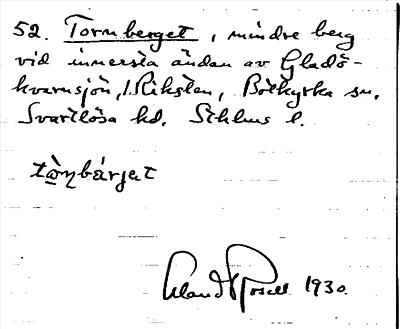 52. Tornberget, mindre berg
vid innersta ändan av Gladö-
kvarnsjön, Riksten, Botkyrka sn.
Svartlösa hd. Sthlms l.
1930.